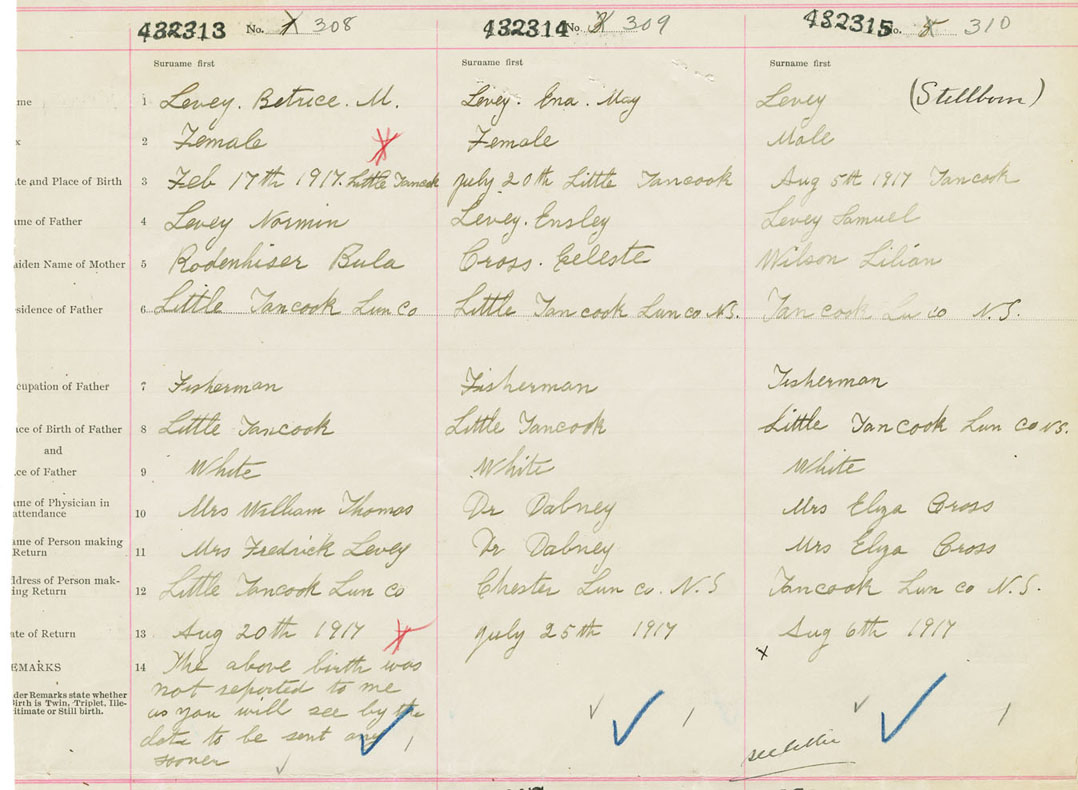 432313 No. 308 432314 No 309 432315 No. 310
Surname first Surname first Surname first
me 1 Levey. Betrice. M. Levey. Ena. May Levey (Stillborn)
x 2 Female Female Male
te and Place of Birth 3 Feb 17th 1917. Little Tancook july 20th Little Tancook Aug 5th 1917 Tancook
me of Father 4 Levey Normin Levey. Ensley Levey Samuel
aiden Name of Mother 5 Rodenhiser Bula Cross. Celeste Wilson Lilian
sidence of Father 6 Little Tancook Lun Co Little Tancook Lun co N.S. Tancook Lu co N.S.
cupation of Father 7 Fisherman Fisherman Fisherman
ace of Birth of Father 8 Little Tancook Little Tancook Little Tancook Lun Co N.S.
and
ce of Father 9 White White White
ame of Physician in
attendance 10 Mrs William Thomas Dr Dabney Mrs Eliza Cross
ame of Person making
Return 11 Mrs Fredrick Levey Dr Dabney Mrs Eliza Cross
ddress of Person mak-
ing Return 12 Little Tancook Lun Co Chester Lun co. N.S Tancook Lun co N.S.
ate of Return 13 Aug 20th 1917 july 25th 1917 Aug 6th 1917
EMARKS 14 The above birth was
not reported to me
der Remarks state whether
irth is Twin, Triplet, Ille-
itimate or Still birth.
as you will see by the
date to be sent any 1 1 1
sooner see letter